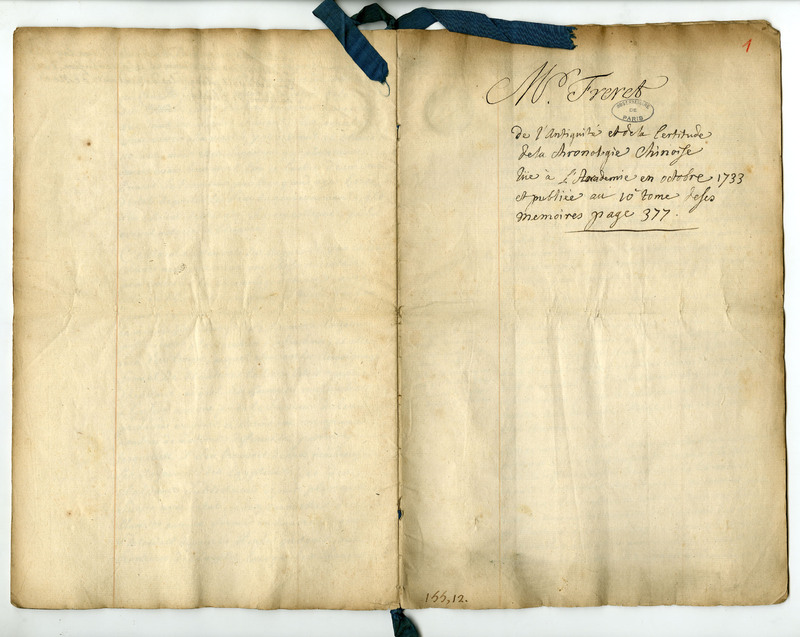 1
Mr. Freret
OBSERVATOIRE
DE
PARIS
De l'Antiquité et de la Certitude
de la chronologie Chinoise
lüe à L'Academie en octobre 1733
et publiée au 10e tome de ses
memoires page 377.
155,12.